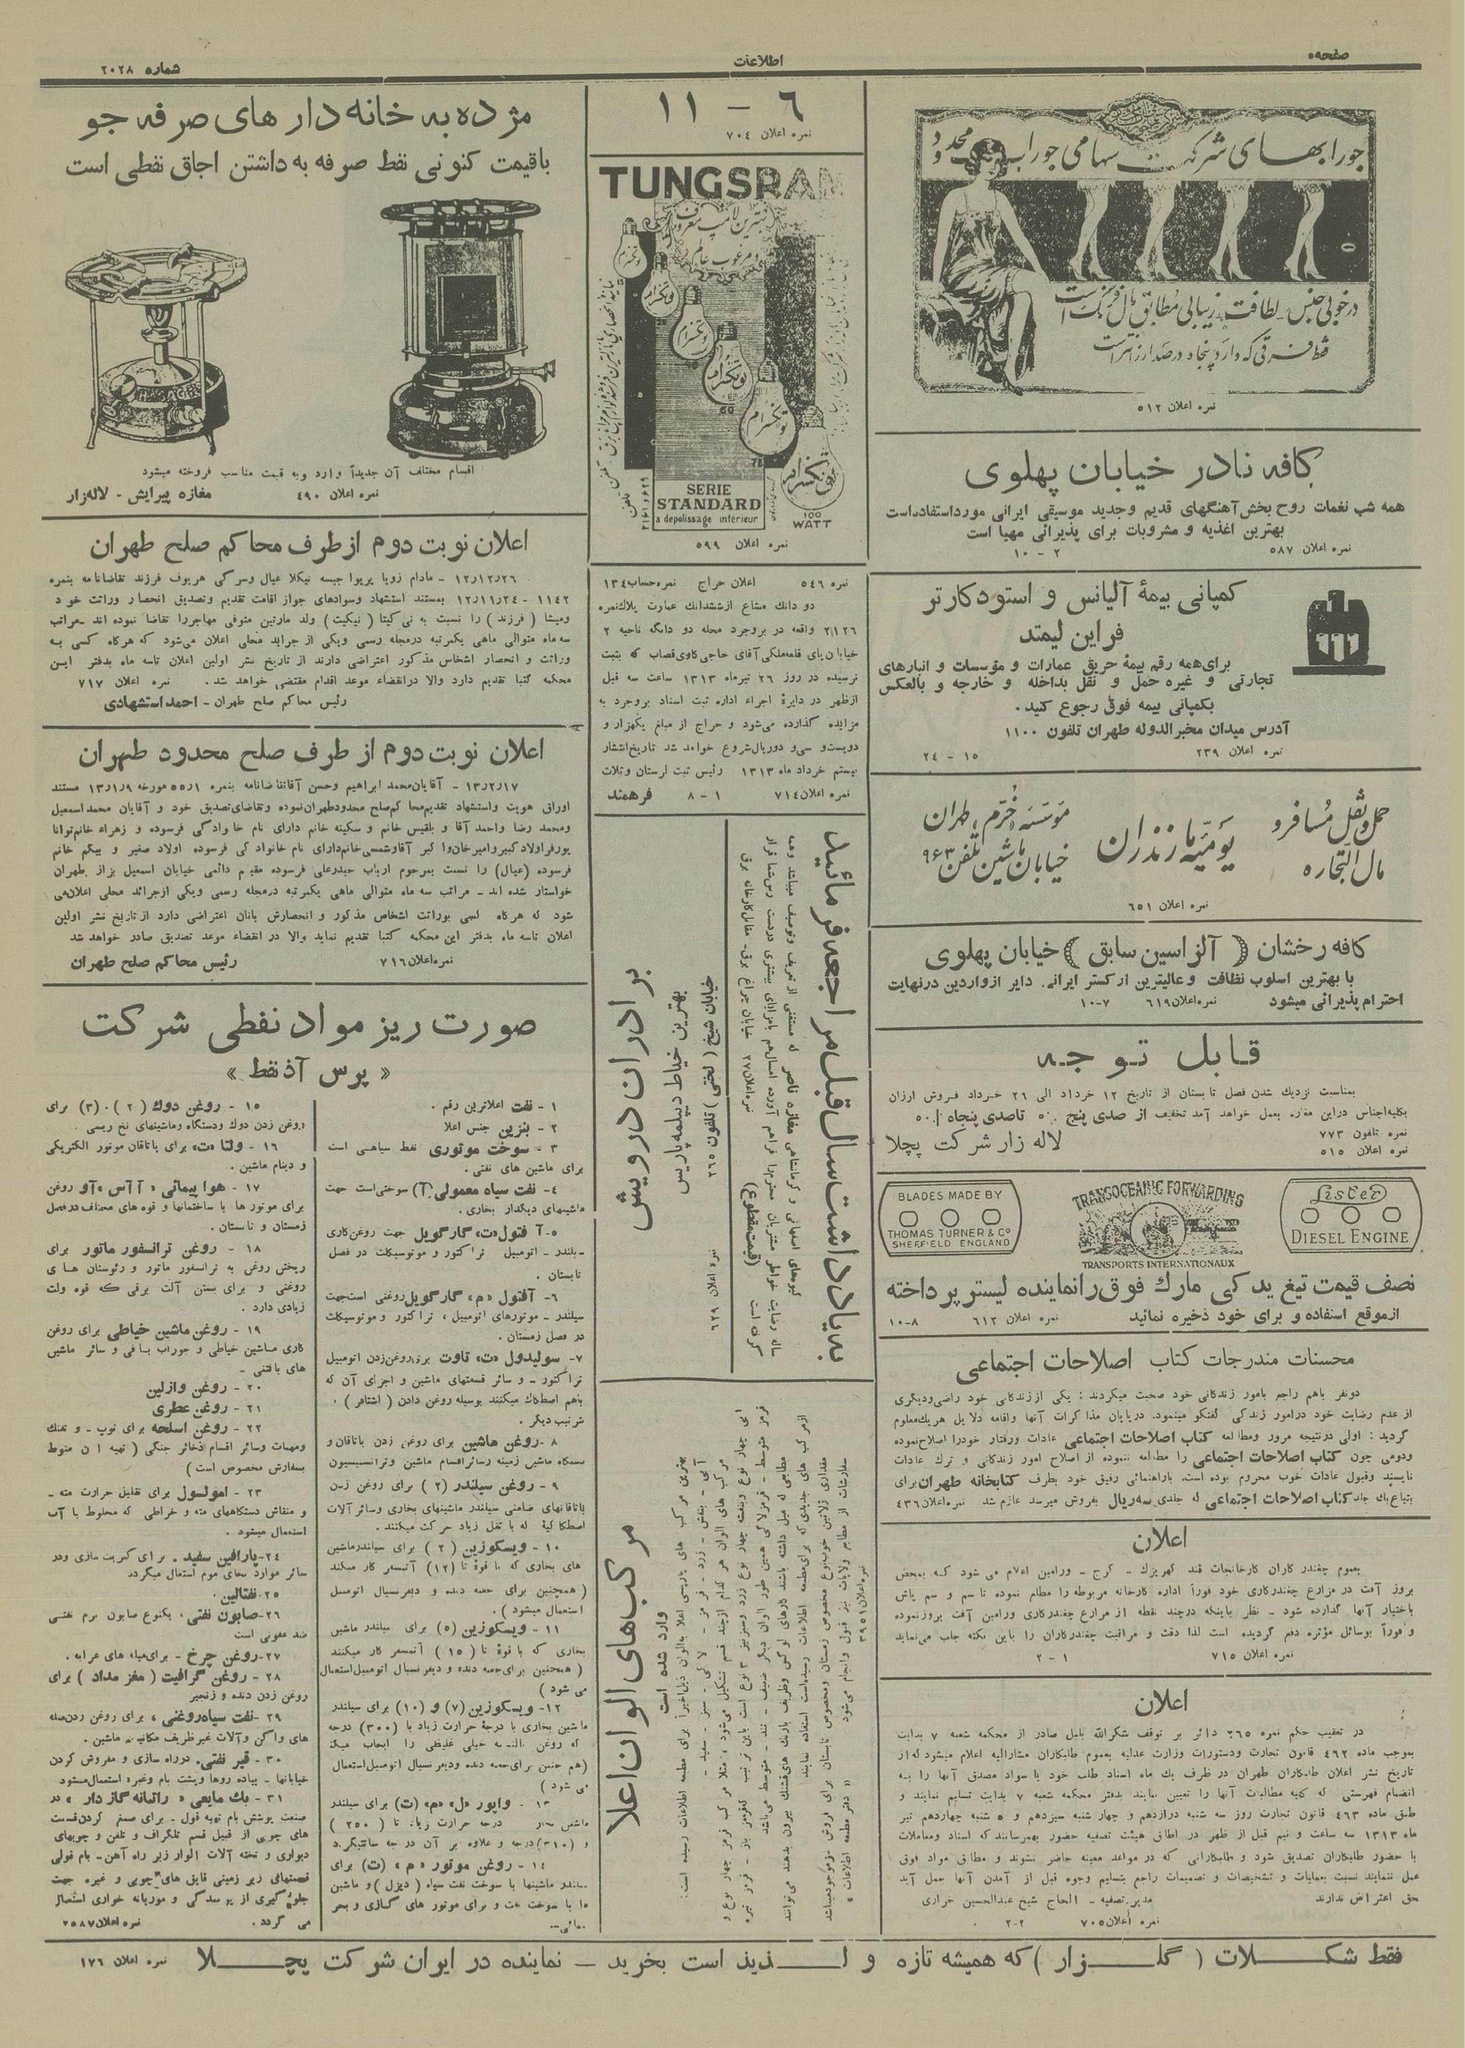 صفحه۵
اطلاعات
شماره ۲۰۲۸
جورابهای شرکت سهامی جوراب محدود
درخوبی جنس لطافت زیبائی مطابق مال فرنگ است
فقط فرقی که دارد پنجاه درصد ارزانتر است
نمره اعلان ۵۱۲
کافه نادر خیابان پهلوی
همه شب نغمات روح بخش آهنگهای قدیم وجدید موسیقی ایرانی مورداستفاده است
بهترین اغذیه و مشروبات برای پذیرائی مهیا است
نمره اعلان ۵۸۷
۲ - ۱۰
کمپانی بیمهٔ آلیانس و استودکارتر
فراین لیمتد
برای همه رقم بیمهٔ حریق عمارات و مؤسسات و انبارهای
تجارتی و غیره حمل و نقل بداخله و خارجه و بالعکس
بکمپانی بیمه فوق رجوع کنید.
آدرس میدان مخبرالدوله طهران تلفون ۱۱۰۰
نمره اعلان ۲۳۹
۱۵ - ۲۴
حمل ونقل مسافر و
مال التجاره
یومیه مازندران
مؤسسه خرم، طهران
خیابان ماشین تلفن ۹۶۳
نمره اعلان ۶۵۱
کافه رخشان ( آلزاسین سابق ) خیابان پهلوی
با بهترین اسلوب نظافت و عالیترین ارکستر ایرانی. دایر ازواردین درنهایت
احترام پذیرائی میشود
نمره اعلان ۶۱۹
۷-۱۰
قابل توجه
بمناسبت نزدیک شدن فصل تابستان از تاریخ ۱۲ خرداد الی ۲۶ خرداد فروش ارزان
نمره تلفون ۷۷۳
نمره اعلان ۵۱۵
لاله زار شرکت پچلا
Lister
DIESEL ENGINE
TRANSOCEANIC FORWARDING
TRANSPORTS INTERNATIONAUX
BLADES MADE BY
THOMAS TURNER & Co
SHEFFIELD ENGLAND
نصف قیمت تیغ یدکی مارک فوق رانماینده لیستر پرداخته
ازموقع استفاده و برای خود ذخیره نمائید
نمره اعلان ۶۱۲
۸-۱۰
محسنات مندرجات کتاب اصلاحات اجتماعی
دونفر باهم راجع بامور زندگانی خود صحبت میکردند : یکی اززندگانی خود راضی ودیگری
از عدم رضایت خود درامور زندگی گفتگو مینمود. درپایان مذاکرات آنها واقامه دلایل هریک معلوم
گردید : اولی درنتیجه مرور ومطالعه کتاب اصلاحات اجتماعی عادات ورفتار خودرا اصلاح نموده
ودومی چون کتاب اصلاحات اجتماعی را مطالعه ننموده از اصلاح امور زندگانی و ترک عادات
ناپسند وقبول عادات خوب محروم بوده است. باراهنمائی رفیق خود بطرف کتابخانه طهران برای
ابتیاع یک جلد کتاب اصلاحات اجتماعی که جلدی سه ریال بفروش میرسد عازم شد نمره اعلان ۴۳۶
اعلان
بعموم چغندر کاران کارخانجات قند کهریزک - کرج - ورامین اعلام می شود که بمحض
بروز آفت در مزارع چغندرکاری خود فوراً اداره کارخانه مربوطه را مطلع نموده تا سم و سم پاش
باختیار آنها گذارده شود - نظر باینکه درچند نقطه از مزارع چغندرکاری ورامین آفت بروزنموده
و فوراً بوسائل مؤثره دفع گردیده است لذا دقت و مراقبت چغندرکاران را باین نکته جلب می نماید
نمره اعلان ۷۱۵
۱ - ۲
اعلان
در تعقیب حکم نمره ۲۶۵ دائر بر توقف شکرالله بابل صادر از محکمه شعبه ۷ بدایت
بموجب ماده ۴۶۲ قانون تجارت ودستورات وزارت عدلیه بعموم طلبکاران مشارالیه اعلام میشود که از
تاریخ نشر اعلان طلبکاران طهران در ظرف یک ماه اسناد طلب خود با سواد مصدق آنها را به
انضمام فهرستی که کلیه مطالبات آنها را تعیین نمایند بدفتر محکمه شعبه ۷ بدایت تسلیم نمایند و
طبق ماده ۴۶۳ قانون تجارت روز سه شنبه دوازدهم و چهار شنبه سیزدهم و ۵ شنبه چهاردهم تیر
ماه ۱۳۱۳ سه ساعت و نیم قبل از ظهر در اطاق هیئت تصفیه حضور بهمرسانند که اسناد ومعاملات
با حضور طلبکاران تصدیق شود و طلبکارانی که در مواعد معینه حاضر نشوند و مطابق مواد فوق
عمل ننمایند نسبت بعملیات و تشخیصات و تصمیمات راجع بتسلیم وجوه قبل از آمدن آنها عمل آید
حق اعتراض ندارند
مدیر تصفیه - الحاج شیخ عبدالحسین خرازی
نمره اعلان ۷۰۵
۲-۲
۶ - ۱۱
نمره اعلان ۷۰۴
TUNGSRAM
بهترین لامپ معروف
و مرغوب عالم
تونگرام
تونگرام
تونگرام
تونگرام
تونگرام
تونگرام
60
75
100
WATT
SERIE
STANDARD
a depolissage interieur
نمره اعلان ۵۹۹
نمره ۵۴۶
اعلان حراج
نمره حساب ۱۳۴
دو دانک مشاع ازششدانک عمارت پلاک نمره
۲۱۲۶ واقعه در بروجرد محله دو دانگه ناحیه ۲
خیابان پای قلعه ملکی آقای حاجی کاوی قصاب که بثبت
نرسیده در روز ۲۶ تیرماه ۱۳۱۳ ساعت سه قبل
ازظهر در دایرهٔ اجراء اداره ثبت اسناد بروجرد به
مزایده گذارده می‌شود و حراج از مبلغ یکهزار و
دویست وسی و دوریال شروع خواهد شد تاریخ انتشار
بیستم خرداد ماه ۱۳۱۳ رئیس ثبت لرستان وثلاث
نمره اعلان ۷۱۴
۱ - ۸
فرهمند
به یاد داشت سال قبل مراجعه فرمائید
گیوه‌های اصفهانی و کرمانشاهی مغازه ناصر که مستغنی از تعریف وتوصیف میباشد وهمه
ساله رضایت خواطر مشتریان محترم را فراهم آورده امسال هم بامزایای بیشتری دردست رس شما قرار
گرفته است
(قیمت مقطوع)
نمره اعلان ۲۷
خیابان چراغ برق - مقابل کارخانه برق
برادران درویش
بهترین خیاط دیپلمه پاریس
خیابان شیخ ( لختی ) تلفون ۲۶۵
نمره اعلان ۶۲۹
مرکب‌های الوان اعلا
وارد شده است
بهترین مرکب های پاریسی اعلا به الوان ذیل اخیراً برای مطبعه اطلاعات رسیده است:
آبی - بنفش - زرد - قرمز - لاکی - سبز - سفید -
نمره اعلان ۳۹۵۱
مژده به خانه دار های صرفه جو
باقیمت کنونی نفط صرفه به داشتن اجاق نفطی است
اقسام مختلف آن جدیداً وارد وبه قیمت مناسب فروخته میشود
نمره اعلان ۴۹۰
مغازه پیرایش - لاله زار
اعلان نوبت دوم از طرف محاکم صلح طهران
۱۲٫۱۲٫۲۶ - مادام زویا پریوا جیسه نیکلا عیال وسرکی هریوف فرزند تقاضانامه بنمره
۱۱۴۲ - ۱۲٫۱۱٫۲۴ بمستند استشهاد وسوادهای جواز اقامت تقدیم وتصدیق انحصار وراثت خود
ومیشا (فرزند) را نسبت به نی کیتا (نیکیت) ولد مارتین متوفی مهاجررا تقاضا نموده اند مراتب
سه ماه متوالی ماهی یکمرتبه درمجله رسمی ویکی از جراید محلی اعلان می‌شود که هرگاه کسی به
وراثت و انحصار اشخاص مذکور اعتراضی دارند از تاریخ نشر اولین اعلان تاسه ماه بدفتر این
محکمه کتبا تقدیم دارد والا درانقضاء موعد اقدام مقتضی خواهد شد.
نمره اعلان ۷۱۷
رئیس محاکم صلح طهران - احمد استشهادی
اعلان نوبت دوم از طرف صلح محدود طهران
۱۳٫۲٫۱۷ - آقایان محمد ابراهیم وحسن آقاتقاضانامه بنمره ۵۵٫۱ مورخه ۱۳٫۱٫۹ مستند
اوراق هویت واستشهاد تقدیم محاکم صلح محدودطهران نموده وتقاضای تصدیق خود و آقایان محمداسمعیل
ومحمد رضا واحمد آقا و بلقیس خانم و سکینه خانم دارای نام خانوادگی فرسوده و زهراء خانم توانا
پورفراولادکبیروامیرخان واکبر آقاوشمسی خانم دارای نام خانوادگی فرسوده اولاد صغیر و بیگم خانم
فرسوده (عیال) را نسبت بمرحوم ارباب حیدرعلی فرسوده مقیم دائمی خیابان اسمعیل بزاز طهران
خواستار شده اند - مراتب سه ماه متوالی ماهی یکمرتبه درمجله رسمی ویکی ازجرائد محلی اعلان می
شود که هرگاه کسی بوراثت اشخاص مذکور و انحصارش بانان اعتراضی دارد از تاریخ نشر اولین
اعلان تاسه ماه بدفتر این محکمه کتبا تقدیم نماید والا در انقضاء موعد تصدیق صادر خواهد شد
نمره اعلان ۷۱۶
رئیس محاکم صلح طهران
صورت ریز مواد نفطی شرکت
« پرس آذ نفط »
۱ - نفت اعلاترین رقم.
۲ - بنزین جنس اعلا
۳ - سوخت موتوری نفط سیاهی است
برای ماشین های نفتی.
۴ - نفت سیاه معمولی (آ) سوختی است جهت
ماشینهای دیگدار بخاری.
۵ - آفتول «ت» گارگویل جهت روغن کاری
سیلندر - اتومبیل تراکتور و موتوسیکلت در فصل
تابستان.
۶ - آفتول «م» گارگویل روغنی است جهت
سیلندر - موتورهای اتومبیل، تراکتور و موتوسیکلت
در فصل زمستان.
۷ - سولیدول «ت» تاوت برای روغن زدن اتومبیل
تراکتور - و سائر قسمتهای ماشین و اجزای آن که
باهم اصطکاک میکنند بوسیله روغن دادن ( اشتافر )
۸ - روغن ماشین برای روغن زدن یاتاقان و
دستگاه ماشین زمینه وسائراقسام ماشین وترانسمیسیون
۹ - روغن سیلندر (۲) برای روغن زدن
۱۰ - ویسکوزین (۲) برای سیلندرماشین
های بخاری که با قوهٔ تا (۱۲) آتمسفر کار میکند
(همچنین برای جعبه دنده و دیفرنسیال اتومبیل
استعمال میشود)
۱۱ - ویسکوزین (۵) برای سیلندر ماشین
بخاری که با قوهٔ تا (۱۵) آتمسفر کار میکنند
(همچنین برای جعبه دنده و دیفرنسیال اتومبیل استعمال
می شود)
۱۲ - ویسکوزین (۷) و (۱۰) برای سیلندر
ماشین بخاری با درجهٔ حرارت زیاد تا (۳۰۰) درجه
(هم چنین برای جعبه دنده ودیفرنسیال اتومبیل استعمال
می شود)
۱۳ - واپور «ل» «م» (ت) برای سیلندر
۱۴ - روغن موتور «م» (ت) برای
۱۵ - روغن دوک (۲) - (۳) برای
روغن زدن دوک ودستگاه وماشینهای نخ ریسی.
۱۶ - ولتا «ت» برای یاتاقان موتور الکتریکی
و دینام ماشین.
۱۷ - هوا پیمائی «آآس» «آو» روغن
برای موتور ها با ساختمانها و قوه های مختلف درفصل
زمستان و تابستان.
۱۸ - روغن ترانسفور ماتور برای
ریختن روغن به ترانسفور ماتور و رئوستان های
روغنی و برای بستن آلت برقی که قوه ولت
زیادی دارد.
۱۹ - روغن ماشین خیاطی برای روغن
کاری ماشین خیاطی و جوراب بافی و سائر ماشین
های بافتنی -
۲۰ - روغن وازلین
۲۱ - روغن عطری
۲۲ - روغن اسلحه برای توپ - و تفنگ
ومهمات وسائر اقسام ذخائر جنگی ( تهیه ان منوط
بسفارش مخصوص است )
۲۳ - امولسول برای تقلیل حرارت مته -
و منقاش دستگاههای مته و خراطی که مخلوط با آب
استعمال میشود.
۲۴ - پارافین سفید. برای کبریت سازی ودر
سائر موارد بجای موم استعمال میگردد
۲۵ - نفتالین.
۲۶ - صابون نفتی، یکنوع صابون نرم نفتی
ضد عفونی است
۲۷ - روغن چرخ - برای میله های عرابه.
۲۸ - روغن گرافیت ( مغز مداد ) برای
روغن زدن دنده و زنجیر
۲۹ - نفت سیاه روغنی، برای روغن زدن میله
های واگن وآلات غیر ظریف مکانیک ماشین.
۳۰ - قیر نفتی. درراه سازی و مفروش کردن
خیابانها - پیاده روها وپشت بام وغیره استعمال میشود
۳۱ - بک مایعی «راتبانه گاز دار» در
دیواری و تخته آلات الوار زیر راه آهن - بام قولی
قسمتهای زیر زمینی قایق های چوبی و غیره جهت
جلوگیری از پوسدگی و موریانه خواری استعمال
می گردد.
نمره اعلان ۲۵۸۷
فقط شکلات ( گلزار ) که همیشه تازه و لذیذ است بخرید - نماینده در ایران شرکت پچلا
نمره اعلان ۱۷۶